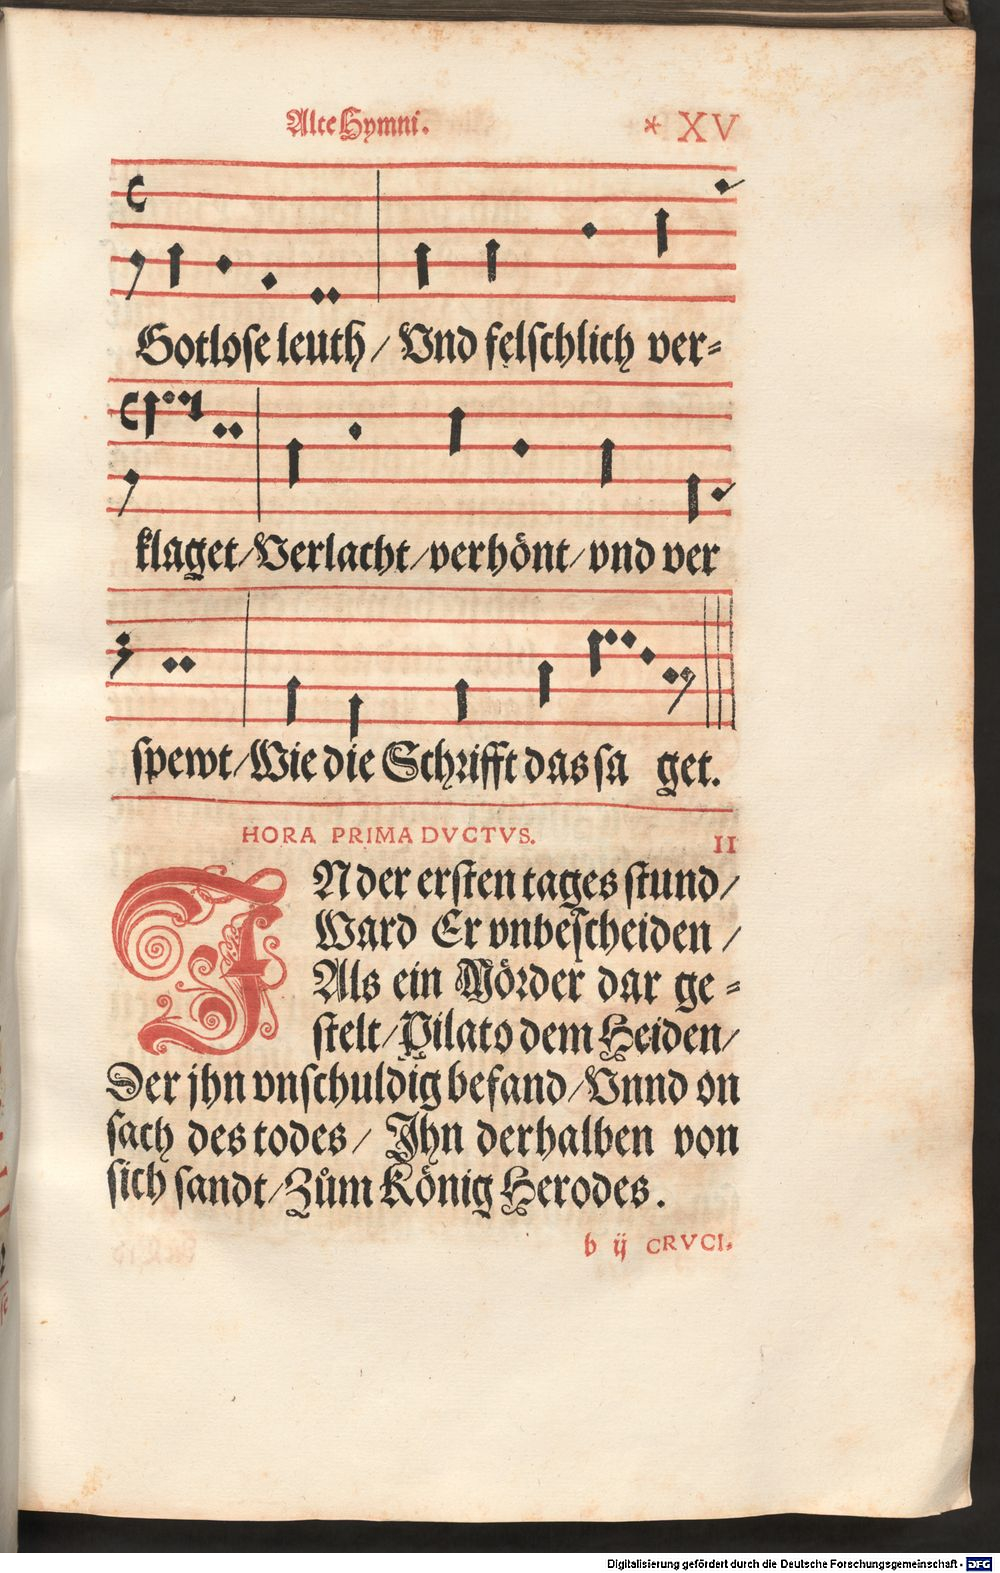 Alte Hymni. * XV
Gotlose leuth / Vnd felschlich ver⸗
klaget / Verlacht / verhönt / vnd ver
spewt / Wie die Schrifft das sa get.
HORA PRIMA DVCTVS. II
IN der ersten tages stund /
Ward Er vnbescheiden /
Als ein Mörder dar ge⸗
stelt / Pilato dem Heiden /
Der jhn vnschuldig befand / Vnnd on
sach des todes / Jhn derhalben von
sich sandt / Zům König Herodes.
b ij CRVCI⸗
Digitalisierung gefördert durch die Deutsche Forschungsgemeinschaft - DFG